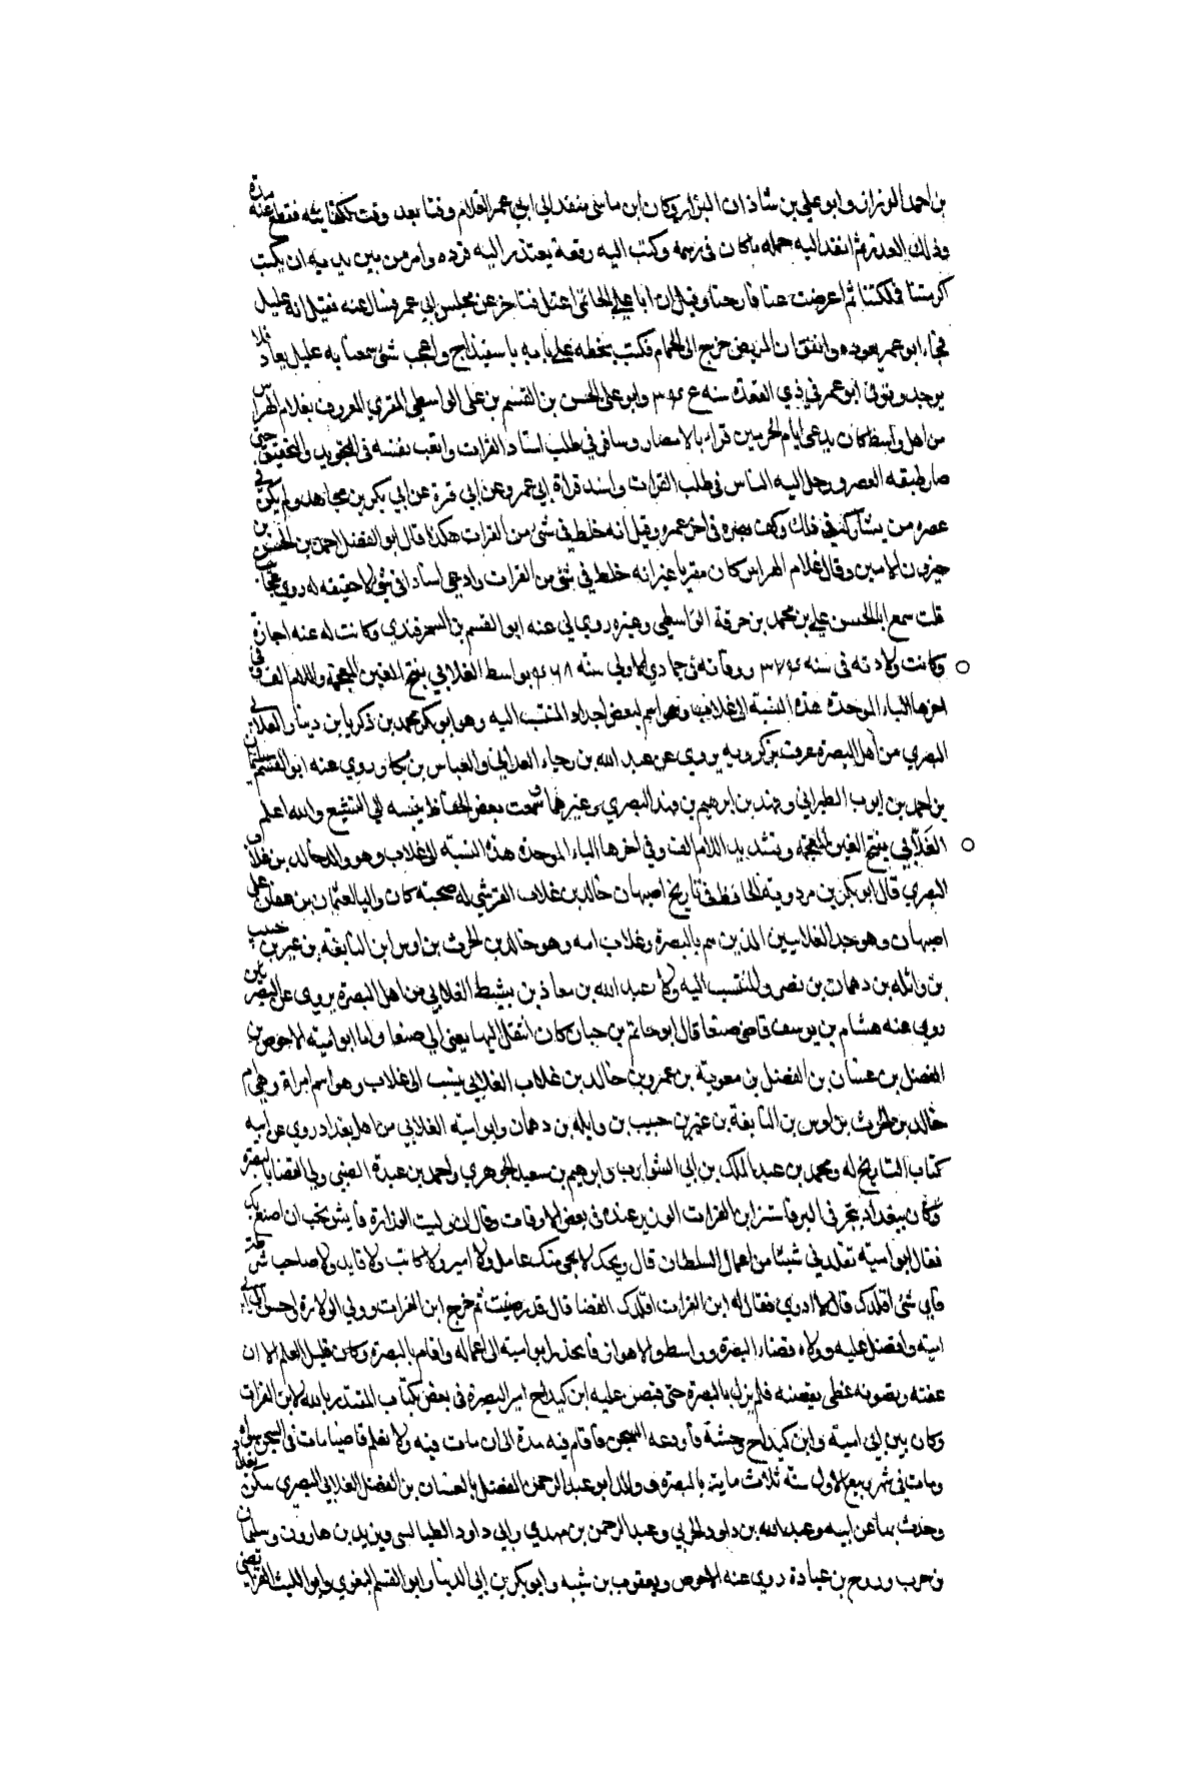 بن احمد الوزان وابو علي بن شاذان البزار وكان ابن ماسى ينفذ الى ابي عمر الغلام وقتا بعد وقت كفايته فقطع عنه مدة
وذلك العدة ثم انفذ اليه جمله ما كان في رسمه وكتب اليه رقعة يعتذر اليه فرده وامر من بين يديه ان يكتب
اكرمتنا فملكتنا ثم اعرضت عنا فارحتنا وقيل ان ابا علي الحاتمي اعتل فتاخر عن مجلس ابي عمر فسال عنه فقيل انه عليل
فجاء ابو عمر يعوده واتفق ان المريض خرج الى الحمام فكتب بخطه على بابه باسفيذاج واعجب شئ سمعنا به عليل يعاد فلا
يوجد وتوفي ابو عمر في ذي القعدة سنه وابو على الحسن بن القسم بن على الواسطي المقري المعروف بغلام الهراس
من اهل واسط كان يدعى امام الحرمين قراء بالامصار وسافر في طلب اسناد القرات واتعب نفسه في التجويد والتحقيق حتى
صار طبقه العصر ورحل اليه الناس في طلب القرات واسند قراة ابي عمرو عن ابي قرة عن ابي بكر بن مجاهد ولم يكن في
عصره من يشاركه في ذلك وكف بصره في اخر عمره وقيل انه خلط في شئ من القرات هكذا قال ابو الفضل احمد بن الحسن بن
خيرون الامين وقال غلام الهراس كان مقريا غير انه خلط في شئ من القرات وادعى اسنادا في شئ لا حقيقه له روى
قلت سمع ابا الحسن علي بن محمد بن خرفة الواسطي وغيره روى لي عنه ابو القسم بن السمرقندي وكانت له عنه اجازة
وكانت ولادته في سنه ٣٧٤ ووفاته في جمادي الاولي سنه ٤٦٨ بواسط الغلابي بفتح الغين المعجمة واللام الف وفي
اخرها الباء الموحدة هذه النسبة الى غلاب وهو اسم لبعض اجداد المنتسب اليه وهو ابو بكر محمد بن زكريا بن دينار الغلابي
البصري من اهل البصرة عرف بزكرويه يروي عن عبد الله بن رجاء الغداني والعباس بن بكار وروي عنه ابو القسم سليمان
بن احمد بن ايوب الطبراني وفهد بن ابرهيم بن فهد البصري وغيرهما سمعت بعض الحفاظ ينسبه الى التشيع والله اعلم
الغلابي بفتح الغين المعجمة وتشديد اللام الف وفي اخرها الباء الموحدة هذه النسبة الى غلاب وهو والد خالد بن غلاب
البصري قال ابو بكر بن مردويه الحافظ في تاريخ اصبهان خالد بن غلاب القرشي له صحبته كان واليا لعثمان بن عفان على
اصبهان وهو جد الغلابيين الذين هم بالبصرة وغلاب امه وهو خالد بن الحرث بن اوس ابن النابغة بن عمير بن حبيب
بن وائله بن دهمان بن نصر وللمنتسب اليه ولاء عبد الله بن معاذ بن نشيط الغلابي من اهل البصرة يروى عن البصريين
روي عنه هشام بن يوسف قاضي صنعا قال ابو حاتم بن حبان كان انتقل اليها يعني الي صنعا واما ابو امية الاحوص بن
المفضل بن غسان بن المفضل بن معوية بن عمرو بن خالد بن غلاب الغلابي ينسب الى غلاب وهو اسم امراة وهي ام
خالد بن الحرث بن اوس بن النابغة بن عتر بن حبيب بن وايله بن دهمان وابو امية الغلابي من اهل بغداد روي عن ابيه
كتاب التاريخ له ومحمد بن عبد الملك بن ابي الشوارب وابرهيم بن سعيد الجوهري واحمد بن عبدة الضبي ولي القضا بالبصرة
وكان ببغداد يتجر في البر فاستتر ابن الفرات الوزير عنده في بعض الاوقات وقال ان وليت الوزارة فايش تحب ان اصنع بك
فقال ابو امية تقلدني شيئا من اعمال السلطان قال ويحك لا يجي منك عامل ولا امير ولا كاتب ولا قايد ولا صاحب شرطة
فاي شئ اقلدك قال لا ادري فقال له ابن الفرات اقلدك القضا قال قد رضيت ثم خرج ابن الفرات وولي الوزارة واحسن الى ابي
امية وافضل عليه وولاه قضاء البصرة وواسط والاهواز فانحدر ابو امية الى اعماله واقام بالبصرة وكان قليل العلم الا ان
عفته وتصونه غطى نقصه فلم يزل بالبصرة حتى قبض عليه ابن كيداج امير البصرة في بعض نكبات المقتدر بالله لابن الفرات
وكان بين ابي امية وابن كيداج وحشة فاودعه السجن فاقام فيه مدة الى ان مات فيه ولا نعلم قاضيا مات في السجن سواه
ومات في شهر ربيع الاول سنة ثلاث ماية بالبصرة ووالده ابو عبد الرحمن المفضل بن الغسان بن المفضل الغلابي البصري سكن بغداد
وحدث بها عن ابيه وعبد الله بن داود الخريبي وعبد الرحمن بن مهدي وابي داود الطيالسي ويزيد بن هارون وسليمان
بن حرب وروح بن عبادة روي عنه ابنه الاحوص ويعقوب بن شيبه وابو بكر بن ابي الدنيا وابو القسم البغوي وابو الليث الفرايضي